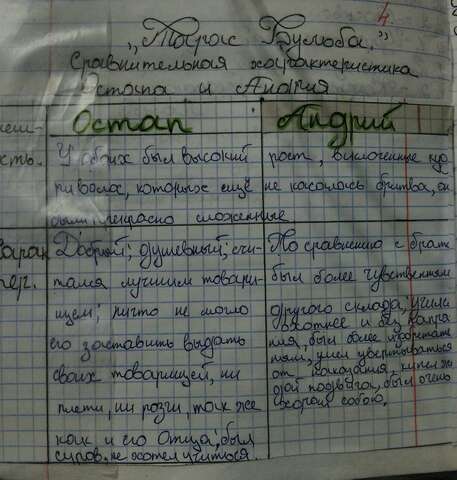 4
„Тарас Бульба."
Сравнительная характеристика
Остапа и Андрия
Остап Андрий
У обоих был высокий рост,
ривалах, которых ещё не касалась бритва, он
были прекрасно сложенные
Добрый, душевный, счи-
тался лучшим товари-
щем; ничто не могло
его заставить выдать
своих товарищей, ни
плети, ни розги, так же
как и его Отца; был
суров, не хотел учиться.
По сравнению с брат
был более чувственным
другого склада; учил
охотнее и без напря
ния, был более изобретат
ным, умел увертываться
от наказания,
подвига, был очень
хорош собою.